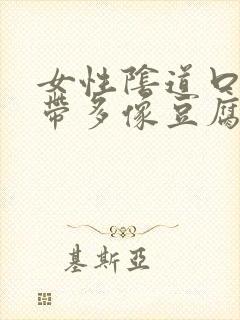 女性陰道口
帶多像豆腐
基斯亞